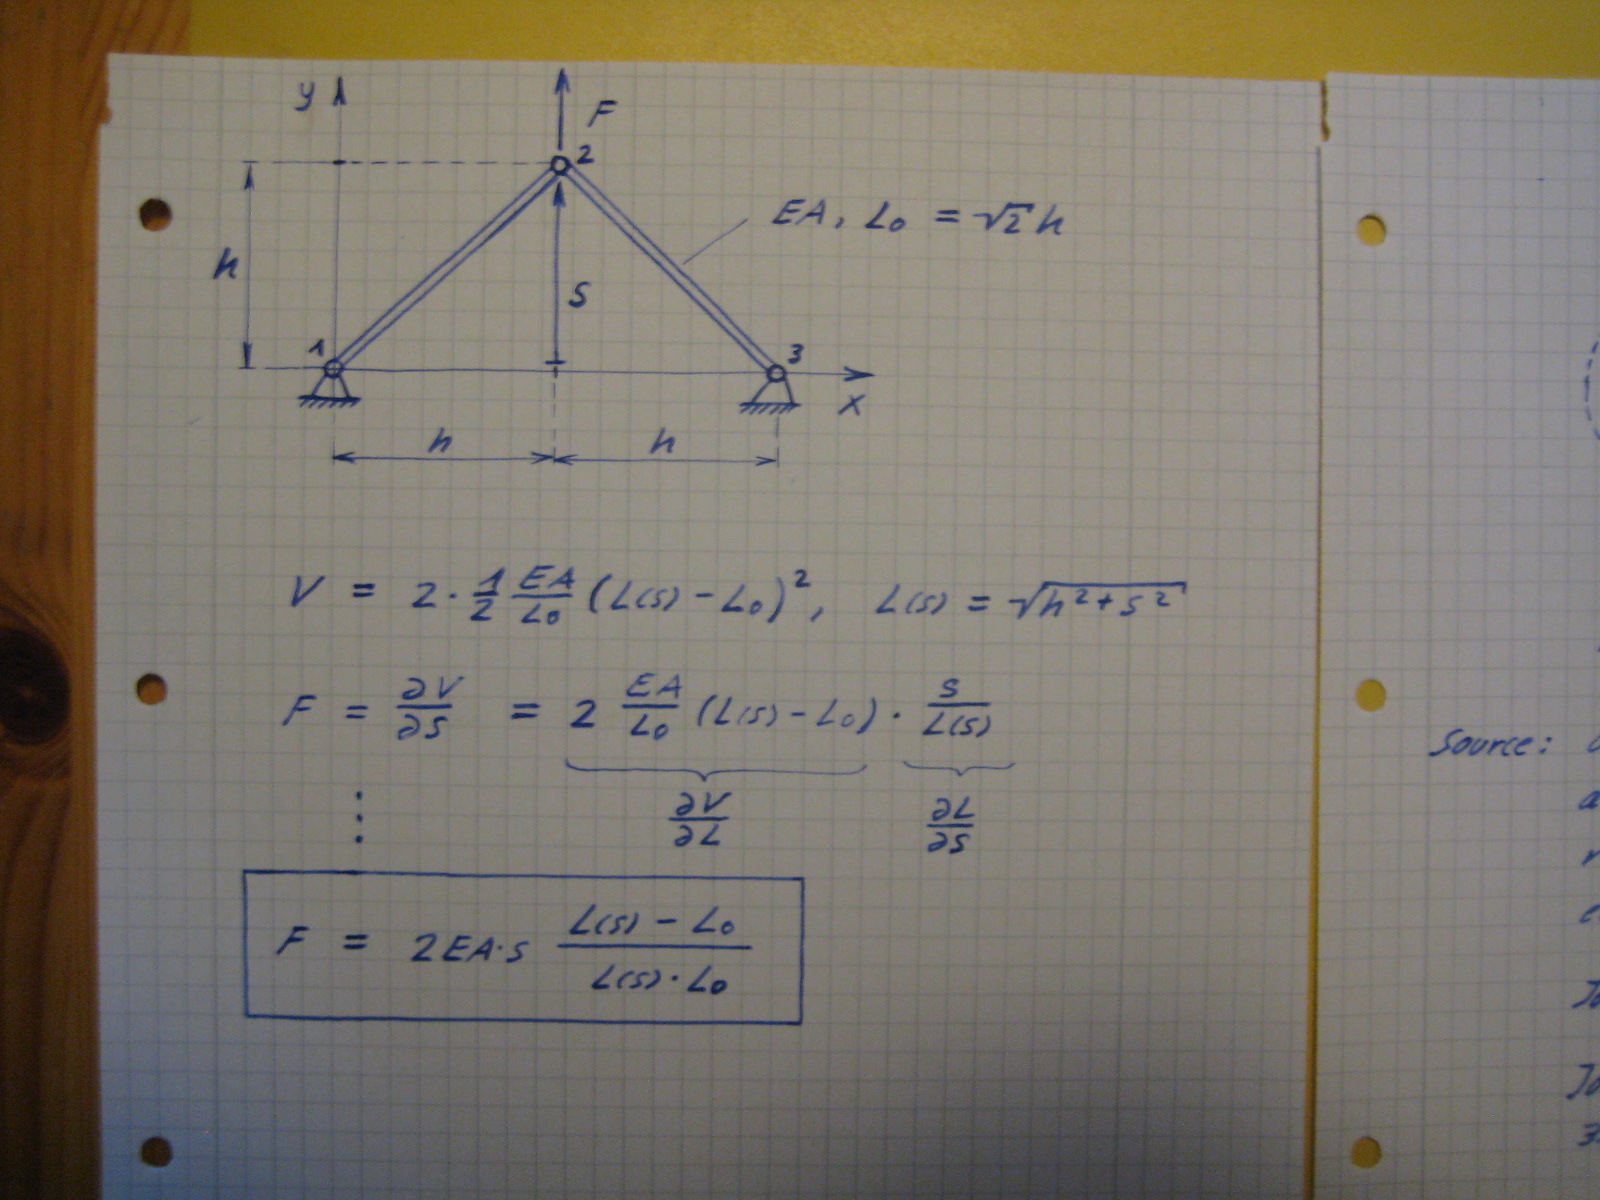 y
F
2
EA, L₀ = √2 h
h
s
1
3
x
h h
V = 2 · 1/2 EA/L₀ (L(s) − L₀)², L(s) = √(h² + s²)
F = ∂V/∂s = 2 EA/L₀ (L(s) − L₀) · s/L(s)
∂V/∂L ∂L/∂s
⋮
F = 2EA·s (L(s) − L₀)/(L(s)·L₀)
Source: